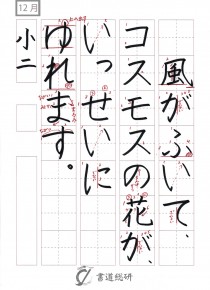 12月
風がふいて、
コスモスの花が、
いっせいに
ゆれます。
小二
書道総研